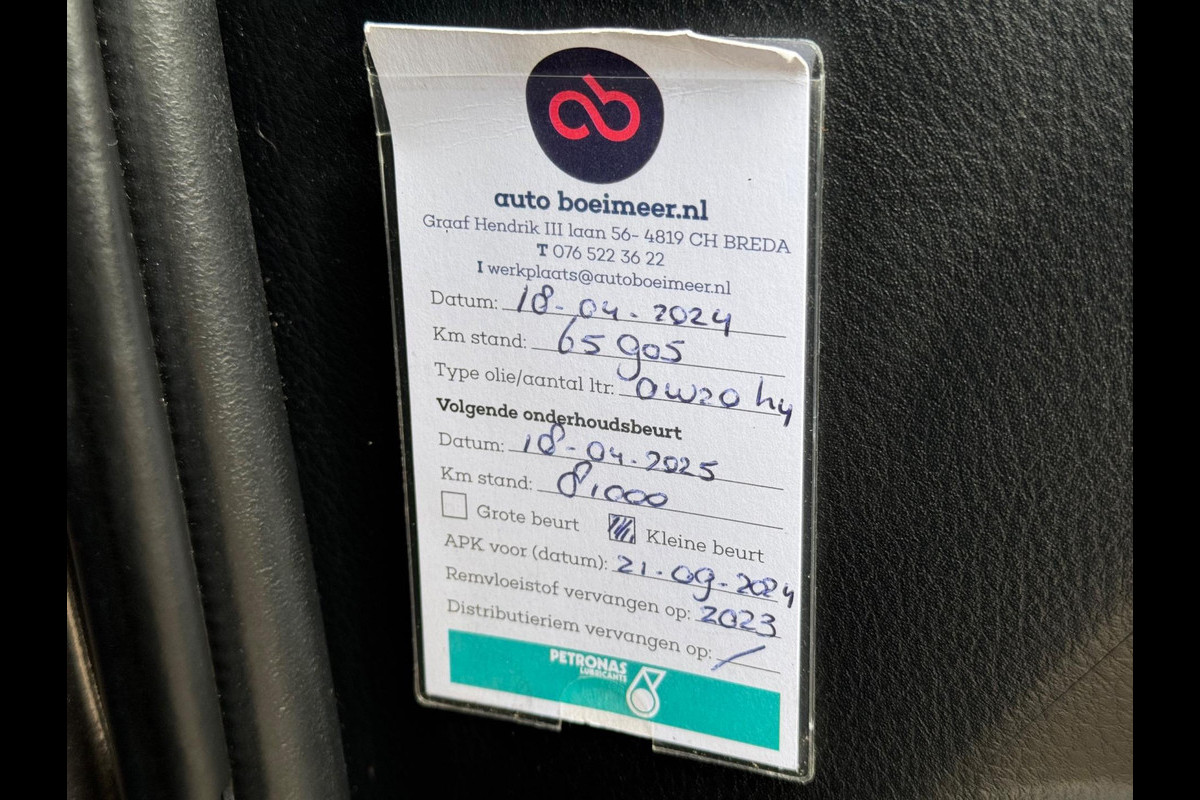 auto boeimeer.nl
Graaf Hendrik III laan 56- 4819 CH BREDA
T 076 522 36 22
I werkplaats@autoboeimeer.nl
Datum: 18-04-2024
Km stand: 65905
Type olie/aantal ltr: 0W20 hy
Volgende onderhoudsbeurt
Datum: 18-04-2025
Km stand: 81000
Grote beurt Kleine beurt
APK voor (datum): 21-09-2024
Remvloeistof vervangen op: 2023
Distributieriem vervangen op: /
PETRONAS
LUBRICANTS